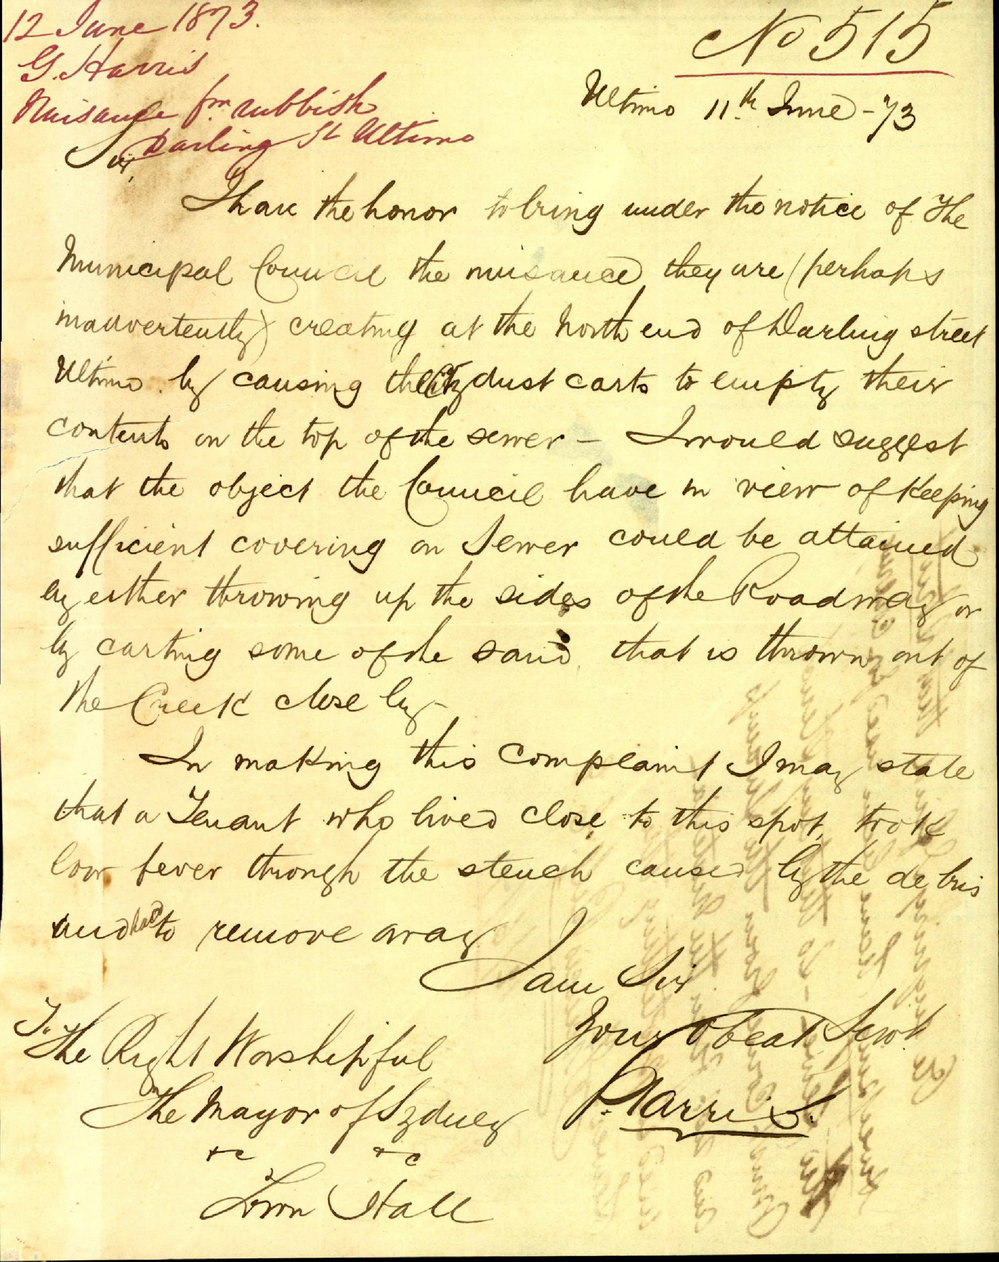 12 June 1873.
G. Harris
Nuisance fm rubbish
Darling St Ultimo
No 515
Ultimo 11th June -/73
Sir,
I have the honor to bring under the notice of The
Municipal Council the nuisance they are (perhaps
inadvertently) creating at the North end of Darling street
Ultimo by causing the City dust carts to empty their
contents on the top of the sewer – I would suggest
that the object the Council have in view of Keeping
sufficient covering on Sewer could be attained
by either throwing up the sides of the Roadway or
by carting some of the sand that is thrown out of
the Creek close by –
In making this complaint I may state
that a Tenant who lived close to this spot, took
low fever through the stench caused by the debris
and had to remove away
I am Sir
Your Obeat Servt
Harris.
To The Right Worshipful
The Mayor of Sydney
&c &c
Town Hall